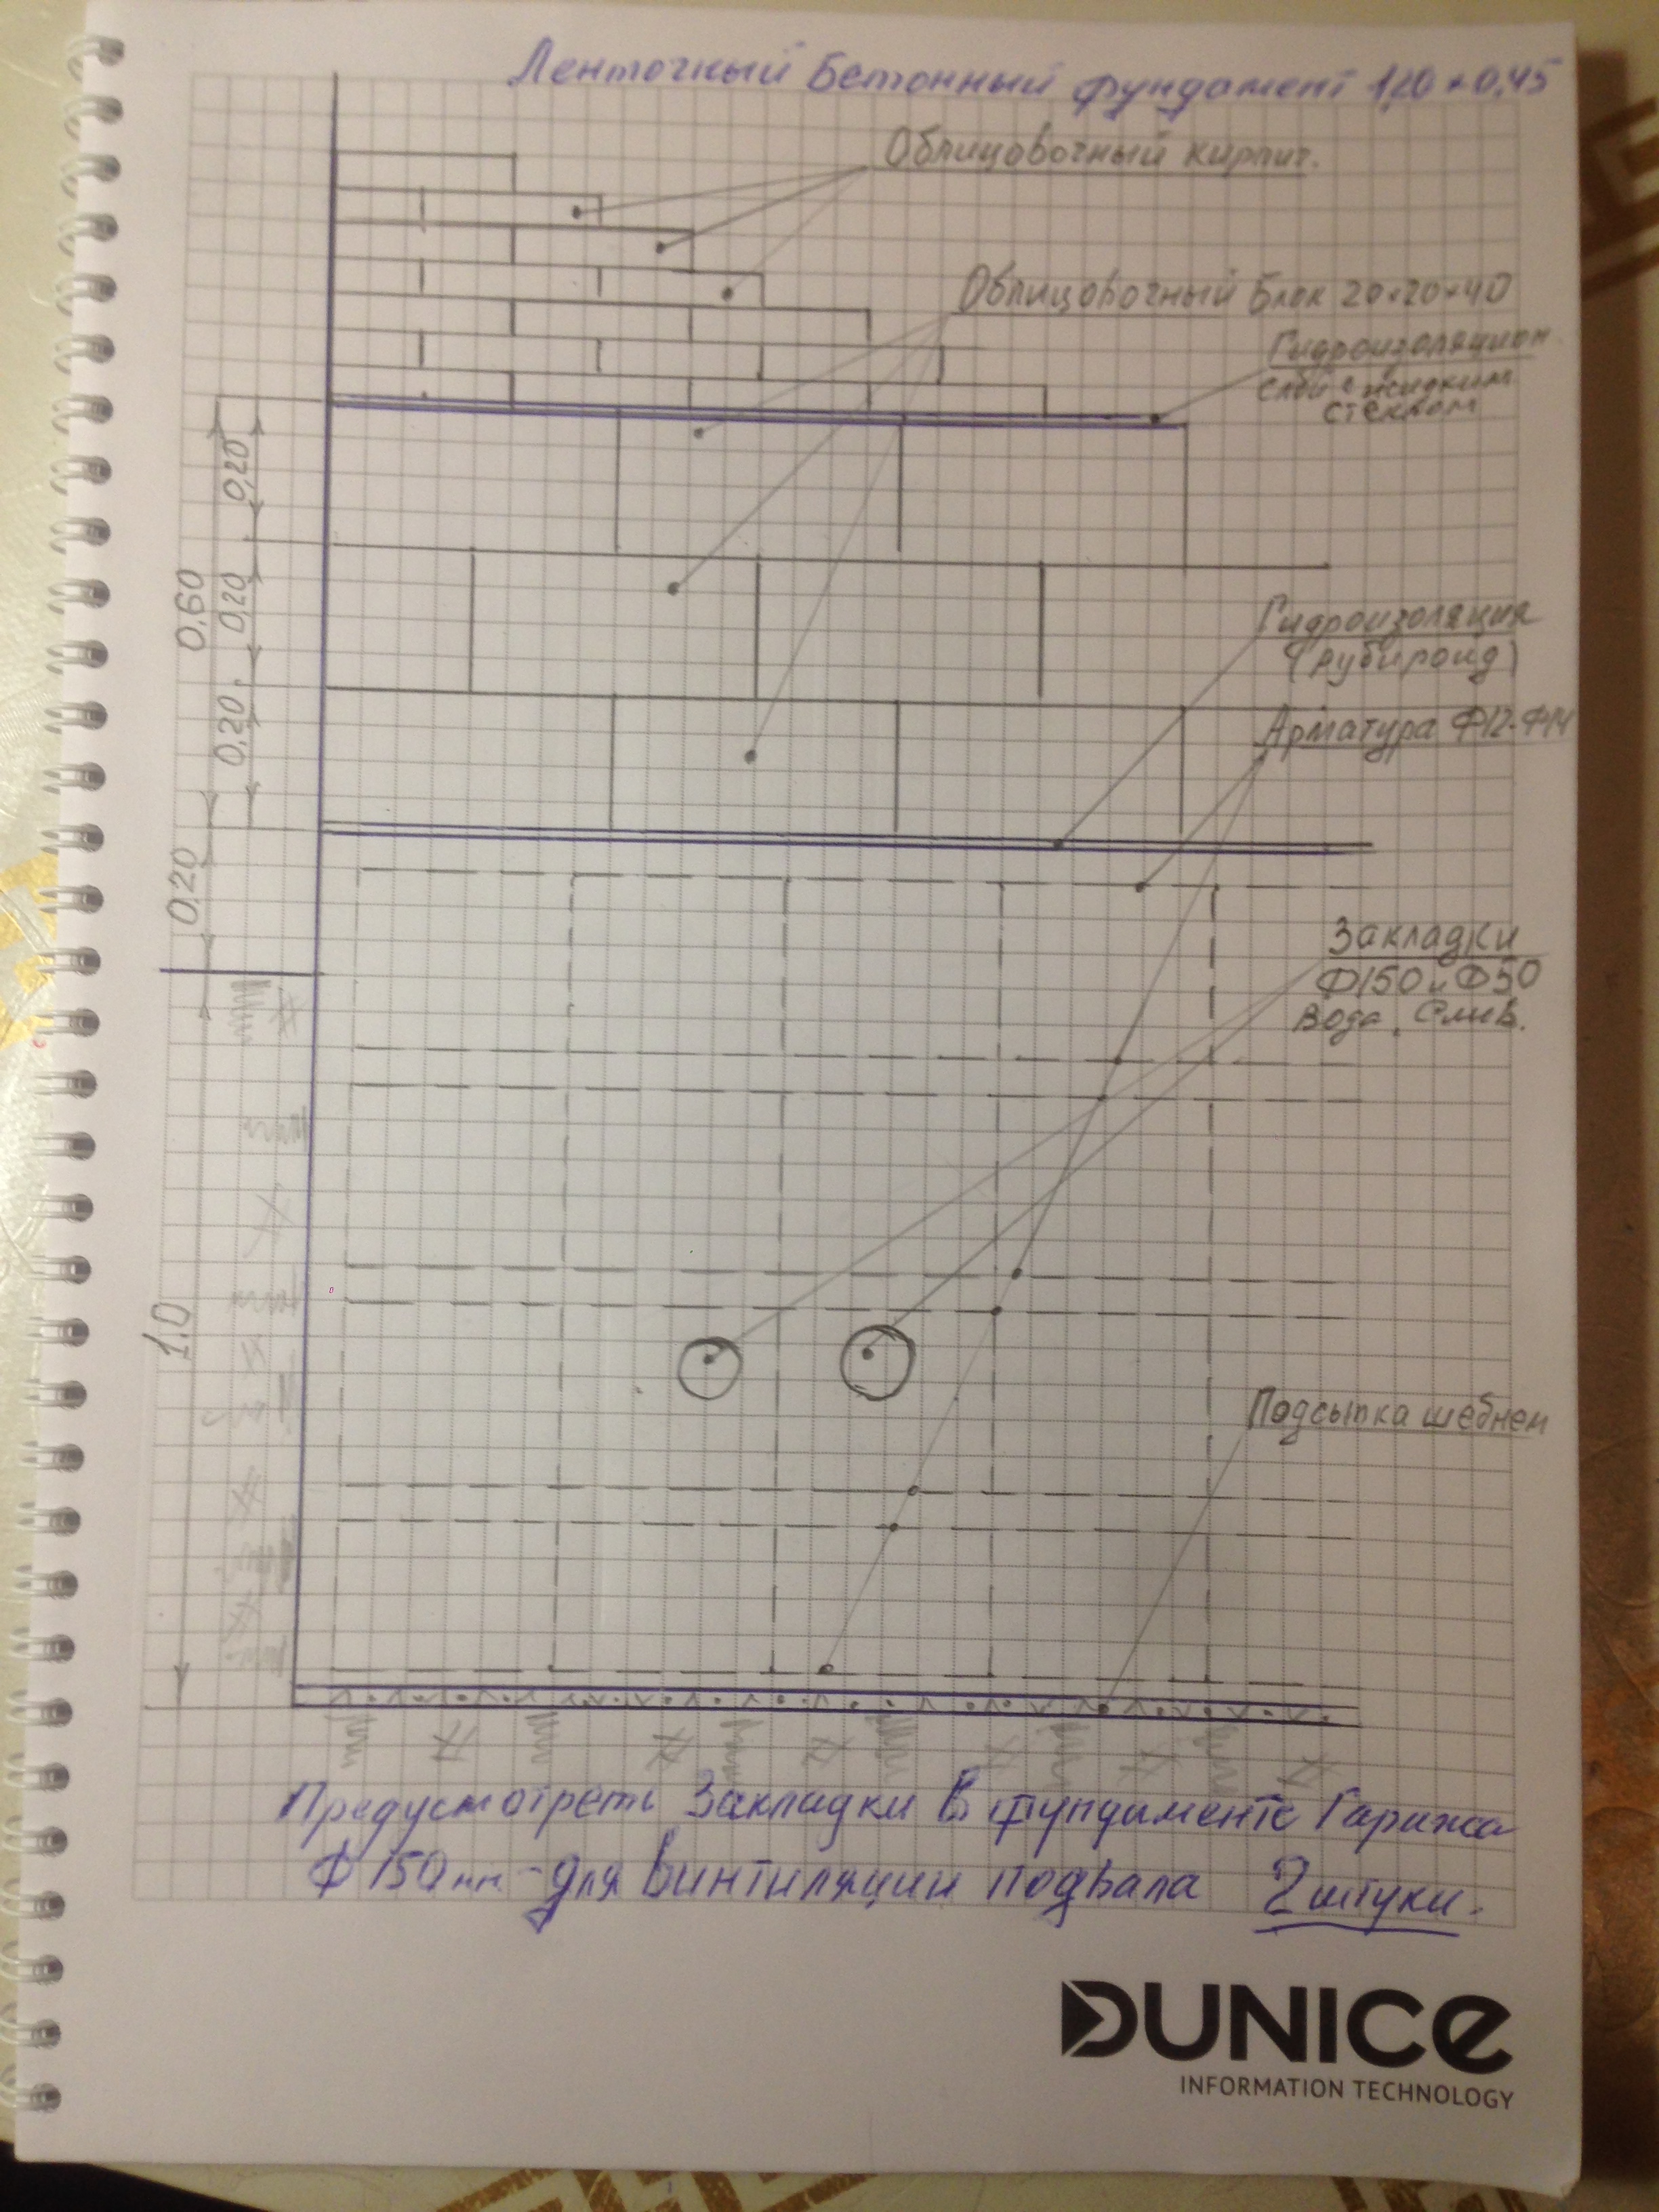 Ленточный Бетонный фундамент 1,20 × 0,45
Облицовочный кирпич.
Облицовочный Блок 20×20×40
Гидроизоляцион.
слой с жидким
стеклом
0,20
0,60
0,20
0,20
Гидроизоляция
(рубироид)
Арматура Ф12-Ф14
0,20
Закладки
Ф150 и Ф50
Вода, Слив.
1.0
Подсыпка щебнем
Предусмотреть Закладки в фундаменте Гаража
Ф 150мм - для винтиляции подвала 2 штуки.
DUNICE
INFORMATION TECHNOLOGY